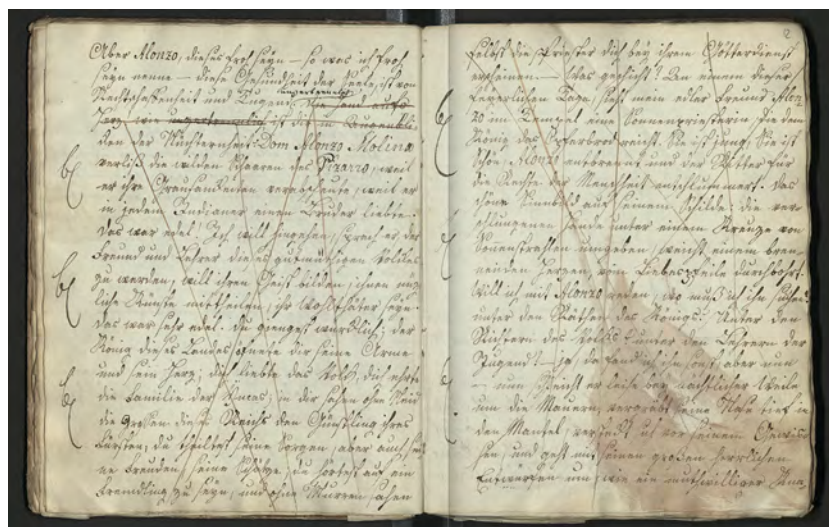 Aber Alonzo, dieses froh seyn – so was ich froh
seyn nenne – diese Gesundheit der Seele, ist von
Rechtschaffenheit und Tugend unzertrennlich
den der Nüchternheit. Dom Alonzo Molina
verließ die wilden Schaaren des Pizarro, weil
er ihre Grausamkeiten verabscheute, weil er
in jedem Indianer einen Bruder liebte.
Das war edel! Ich will hingehen, sprach er, der
Freund und Lehrer dieses gutmüthigen Volkes
zu werden, will ihren Geist bilden, ihnen nüz
liche Künste mittheilen, ihr Wohlthäter seyn.
Das war sehr edel. Du giengst würklich; der
König dieses Landes öfnete dir seine Arme
und sein Herz; dich liebte das Volk, dich ehrte
die Familie der Yncas; in dir sahen ohne Neid
die Großen dieses Reichs den Günstling ihres
Fürsten, du theiltest seine Sorgen, aber auch sei
ne Freuden, seine Schätze. Du hörtest auf ein
Fremdling zu seyn, und ohne Murren sahen
2
selbst die Priester dich bey ihrem Götterdienst
erscheinen. – Was geschieht? An einem dieser
feyerlichen Tage, sieht mein edler Freund Alon
zo im Tempel eine Sonnenpriesterin, die dem
König das Opferbrod reicht. Sie ist jung, Sie ist
schön, Alonzo entbrennt und der Ritter für
die Rechte der Menschheit entschlummert. Das
schöne Sinnbild auf seinem Schilde: die ver
schlungenen Hände unter einem Kreuze von
Sonnenstrahlen umgeben, weicht einem bren
nenden Herzen, vom Liebespfeile durchbohrt.
Will ich mit Alonzo reden, wo muß ich ihn suchen?
unter den Räthen des Königs? Unter den
Richtern des Volks? unter den Lehrern der
Jugend? – ja, da fand ich ihn sonst, aber nun
– nun schleicht er leise bey nächtlicher Weile
um die Mauern, vergräbt seine Nase tief in
den Mantel, versteckt sich vor seinem Gewis
sen, und geht mit seinen großen herrlichen
Entwürfen um, wie ein muthwilliger Kna,